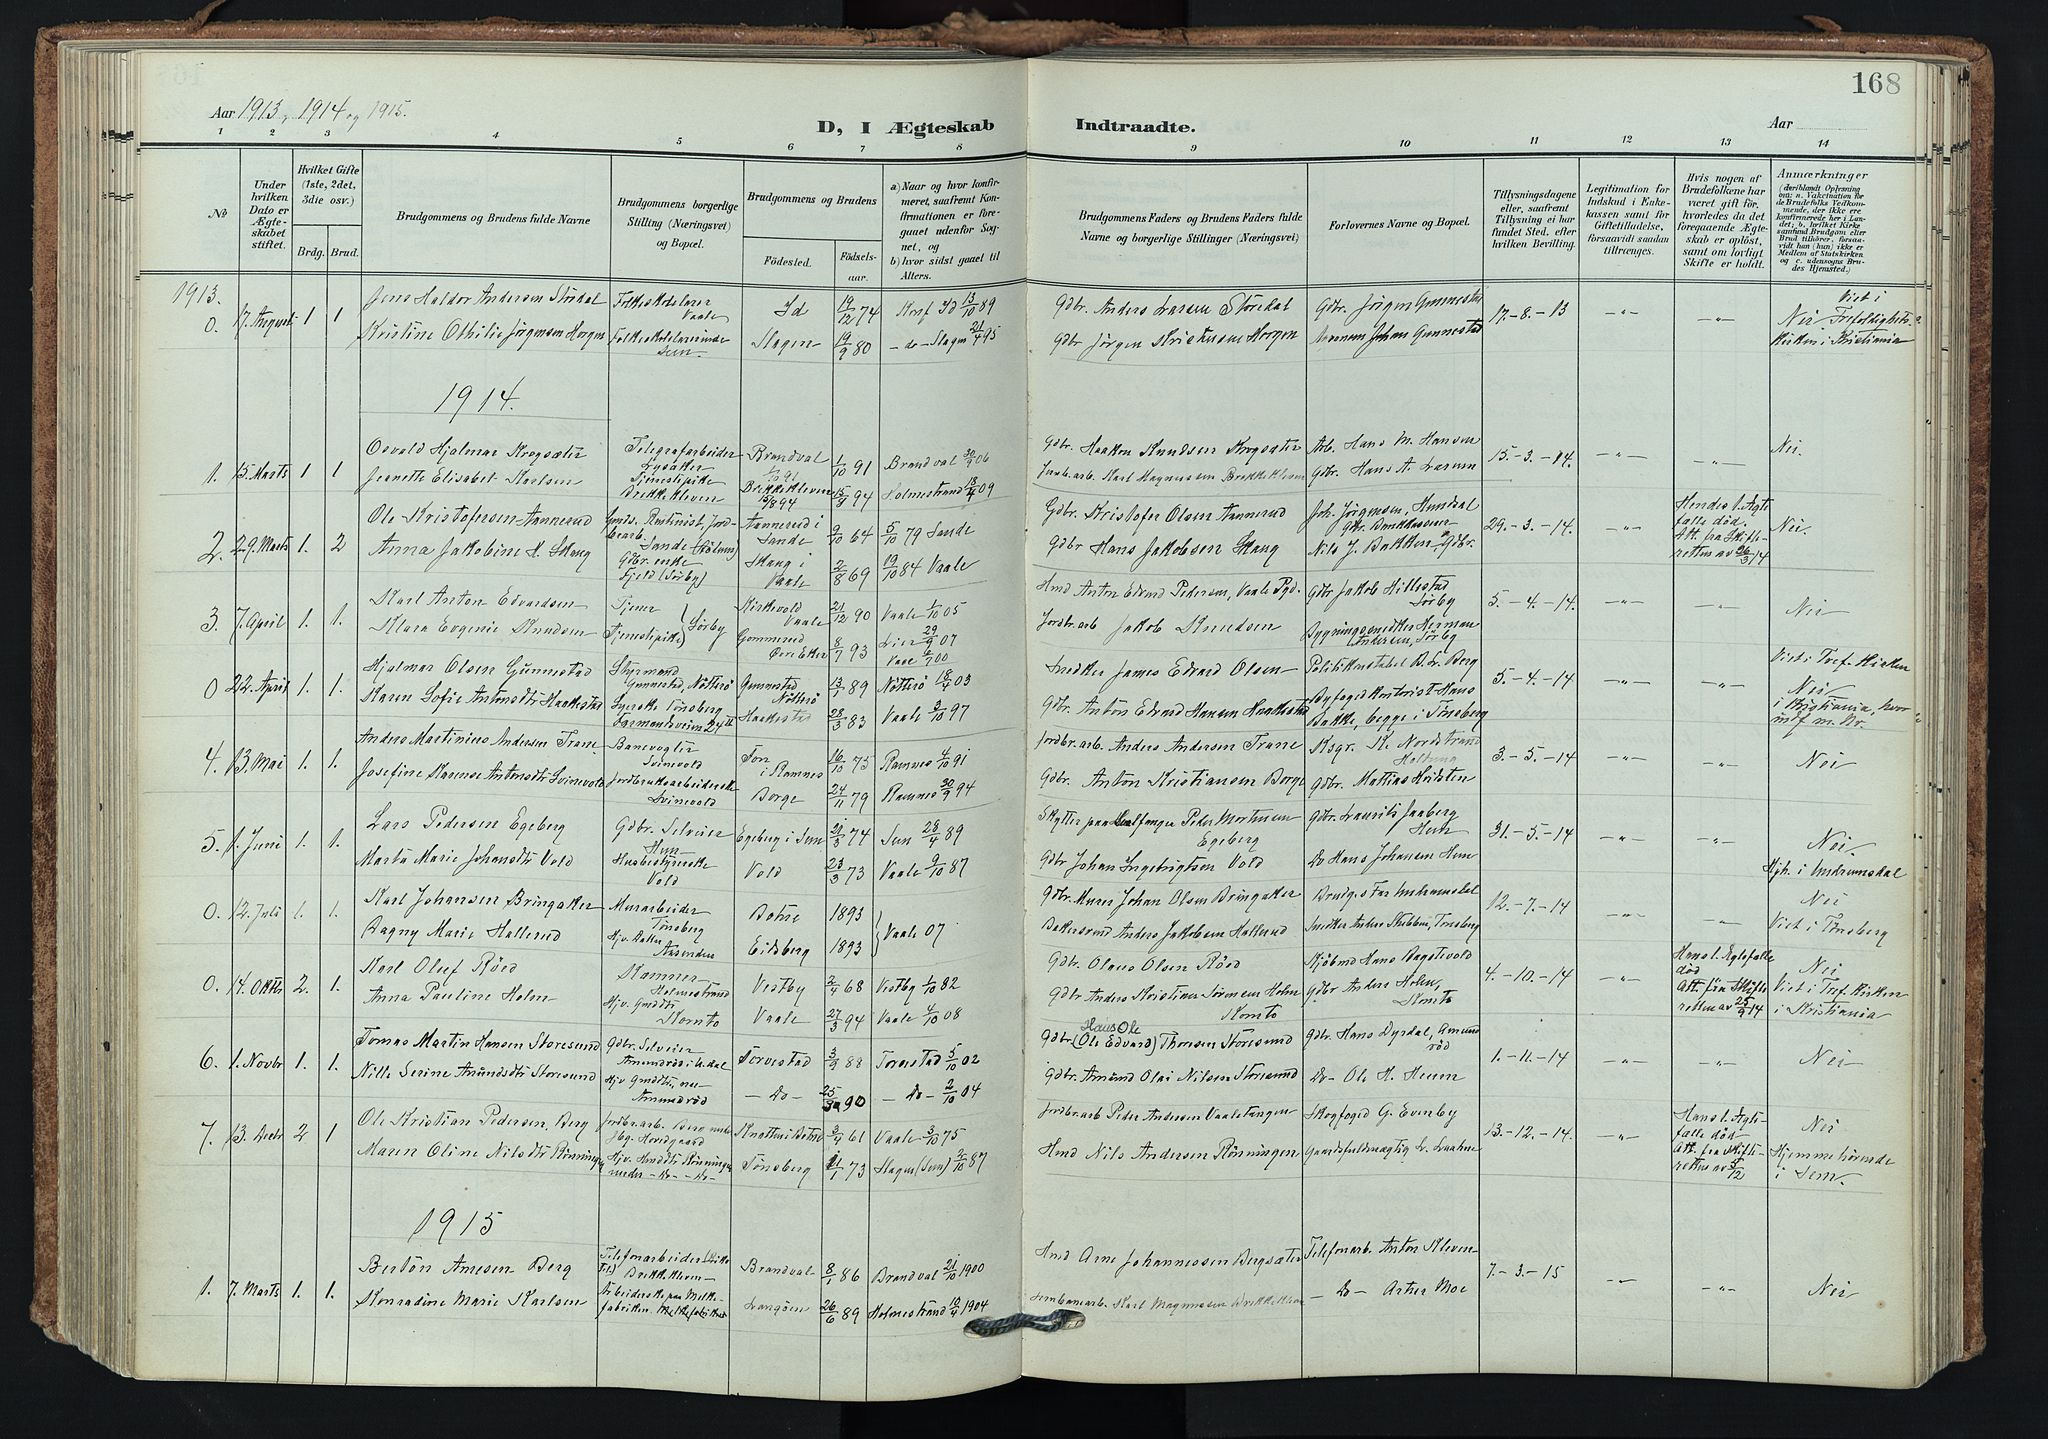 168
Aar 1913, 1914 og 1915.
D, I Ægteskab Indtraadte.
Aar
1 2 3 4 5 6 7 8 9 10 11 12 13 14
No
Under hvilken Dato er Ægteskabet stiftet.
Hvilket Gifte (1ste, 2det, 3die osv.)
Brdg. Brud.
Brudgommens og Brudens fulde Navne
Brudgommens borgerlige Stilling (Næringsvei) og Bopæl.
Brudgommens og Brudens
Fødested. Fødselsaar.
a) Naar og hvor konfirmeret, saafremt Konfirmationen er foregaaet udenfor Sognet, og
b) hvor sidst gaaet til Alters.
Brudgommens Faders og Brudens Faders fulde Navne og borgerlige Stillinger (Næringsvei)
Forlovernes Navne og Bopæl.
Tillysningsdagene eller, saafremt Tillysning ei har fundet Sted, efter hvilken Bevilling.
Legitimation for Indskud i Enkekassen samt for Giftetilladelse, forsaavidt saadan tiltrænges.
Hvis nogen af Brudefolkene har været gift før, hvorledes da det foregaaende Ægteskab er opløst, samt om lovligt Skifte er holdt.
Anmærkninger
(deriblandt Oplysning om: a. Vaksination for de Brudefolks Vedkommende, der ikke ere konfirmerede her i Landet; b. hvilket Kirkesamfund Brudgom eller Brud tilhører, forsaavidt han (hun) ikke er Medlem af Statskirken og c. udensogns Brudes Hjemsted.)
1913.
0. 17. August 1 1 Jens Haldor Andersen Störedal Folkeskolelærer Vaale Id 19/12 74 Konf. Id 13/10 89 Gdbr. Anders Larsen Störedal Gdbr. Jörgen Gunnestad 17-8-13 Nei Viet i Trefoldigheds-
Kristine Othilie Jörgensen Horgen Folkeskolelærerinde Sem Slagen 19/9 80 -do- Slagen 21/4 95 Gdbr Jörgen Horgen Johan Gunnestad kirken i Kristiania
1914.
1. 15. Marts 1 1 Osvald Hjalmar Krogsæter Telegrafarbeider Lysaker Brandval 1/10 91 Brandval 30/9 06 Gdbr. Haakon Knudsen Krogsæter Arb. Hans M. Hansen 15.-3.-14. Nei.
Jeanette Elisabet Karlsen Tjenestepike Brekkekleven Brekkekleven 15/8 94 Holmestrand 18/4 09 Karl Magnussen Brekkekleven Gdbr. Hans A. Larsen
2. 29. Marts 1. 2 Ole Kristofersen Aannerud Sande Aannerud i Sande 9/10 64 5/10 79 Sande Gdbr. Kristofer Olsen Aannerud Joh. Jörgensen, 29.-3.-14. Hendes 1. Ægtefælle död. Nei.
Anna Jakobine H. Skaug Gdbr. enke Fjeld (Sörby) Skaug i Vaale 2/8 69 19/10 84 Vaale Gdbr Hans Jakobsen Skaug Nils J. Bakken Gdbr. Att. fra Skifteretten av 26/3 14
3. 7. April 1. 1. Karl Anton Edvardsen Tjener Sörby Kirkevold Vaale 21/12 90 Vaale 1/10 05 Hmd Anton Edvard Pedersen, Vaale Pgd. Gdbr Jakob Hillestad Sörby 5.-4.-14. Nei
Mara Evgenie Knudsen Tjenestepike Gommerud Övre Eker 8/7 93 Lier 29/9 07 Jordbr.arb Jakob Knudsen Bygningssnedker Herman Andersen, Sörby
0 22. April 1. 1. Hjalmar Olsen Gunnestad Styrmand Gunnestad, Nötterö Gunnestad Nötterö 13/1 89 Nötterö 18/4 03 Snedker James Edvard Olsen Politikonstabel B. L. Berg 5.-4.-14 Viet i Tref. Kirken
Karen Sofie Antonsdtr Haakestad Tönsberg Farmandsveien 24 Haakestad 28/3 83 Vaale 9/10 97 Gdbr. Anton Edvard Hansen Haakestad Byfogedkontorist Hans Bakke, begge i Tönsberg Nei i Kristiania, hvor indf m. Nr.
4. 13. Mai 1. 1. Anders Martinius Andersen Trane Banevogter Svinevold Fon i Ramnes 16/10 75 Ramnes 4/10 91 Jordbr.arb. Anders Andersen Trane Ksgr. K. Nordstrand 3.-5.-14 Nei
Josefine Karense Antonsdtr Svinevold Svinevold Borge 24/11 79 Ramnes 30/9 94 Gdbr. Anton Kristiansen Borge Gdbr. Mathias Holsten
5. 1. Juni 1. 1. Lars Pedersen Egeberg Gdbr. Selveier Hem Egeberg i Sem 21/3 74 Sem 28/4 89 Skytter paa hvalfanger Peder Mortensen Egeberg Gdbr. Laurits Jaaberg Hem 31.-5.-14 Nei.
Marta Marie Johansdtr Vold Husbestyrerske Vold Vold 23/3 73 Vaale 9/10 87 Gdbr Johan Ingebrigtsen Vold Do Hans Johansen Hem Hjh. i Undrumsdal
0. 12. Juli 1. 1. Karl Johansen Bringaker Murarbeider Tönsberg Botne 1893 Vaale 07 Gdbr. Murer Johan Olsen Bringaker Brudges Far 12.-7.-14 Nei
Dagny Marie Hallerud Hjv. Datter Eidsberg 1893 Anders Jakobsen Hallerud Snedker Tönsberg Viet i Tönsberg
0. 14. Oktbr 2. 1. Karl Oluf Röed Holmestrand Vestby 2/4 68 Vestby 1/10 82 Gdbr. Olaus Olsen Röed Kjöbmd Hans Bagstevold 4.-10.-14 Hans 1. Egtefælle död Nei
Anna Pauline Holm Hjv. Gmdtr Komtö Vaale 27/3 94 Vaale 4/10 08 Gdbr Anders Kristian Sörensen Holm Komtö Gdbr Anders Holm, Komtö Att. fra Skifteretten av 25/9 14 Viet i Tref. Kirken i Kristiania
6. 1. Novbr 1. 1. Tomas Martin Hansen Storesund Gdbr. Selveier Torvestad 3/9 88 Torvestad 5/10 02 Gdbr (Ole Edvard) Hans Ole Thorsen Storesund Gdbr. Hans Dyrdal, Amundröd 1.-11.-14 Nei
Nille Serine Amundsdtr Storesund Hjv Gmdtr, Amundröd -Do- 25/3 90 -Do- 2/10 04 Gdbr. Amund Olai Nilsen Storesund Do- Ole H. Heum
7. 13. Decbr 2 1 Ole Kristian Pedersen Berg Jordbr.arb. Berg Knatten i Botne 3/4 61 Vaale 3/10 75 Jordbr.arb Peder Andersen Vaaletangen Skogfoged G. Evenby 13.-12.-14. Hans 1. Ægtefælle död Nei
Maren Oline Nilsdtr Rönningen Hjv. Hmdtr Rönningen Tönsberg 1/1 73 Slagen (Sem) 2/10 87 Hmd Nils Andersen Rönningen Gaardsfuldmægtig L. Laahne Att. fra Skifteretten av 5/12 Hjemmehörende i Sem.
1915
1. 7. Marts 1. 1. Bertön Arnesen Berg Telefonarbeider Brekkekleven Brandval 8/1 86 Brandval 21/10 1900 Hmd Arne Johannessen Bergsæter Telefonarb. Anton Kleven 7.-3.-15 Nei
Konradine Marie Karlsen Arbeiderske paa Melkefabriken Langöen 26/6 89 Holmestrand 10/4 1904 Jernbanearb. Karl Magnussen Brekkekleven -Do- Arthur Moe